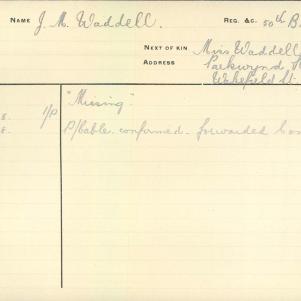 NAME J. M. Waddell. REG. &C. 50th B
NEXT OF KIN Miss Waddell
ADDRESS Parkwynd
Wakefield St.
"Missing"
8. 1/P
8. P/bable confirmed - forwarded